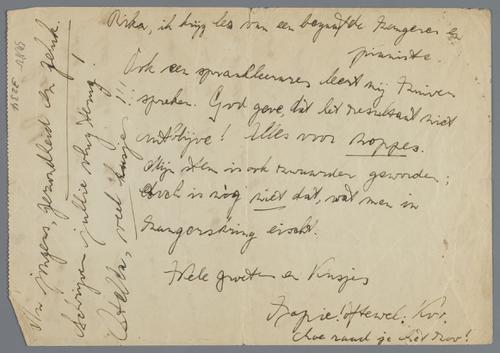 Rika, ik krijg les van een begaafde zangeres en
pianiste.
Ook een spraakleerares leert mij zuiver
spreken. God geve, dat het resultaat niet
uitblijve! Alles voor noppes.
Mijn stem is ook zwaarder geworden;
doch is nòg niet dat, wat men in
zangerskring eischt.
Vele groeten en kusjes
oftewel: Kor.
hoe raad je het zoo!
jongens, gezondheid en geluk.
jullie
veel kusjes!!!